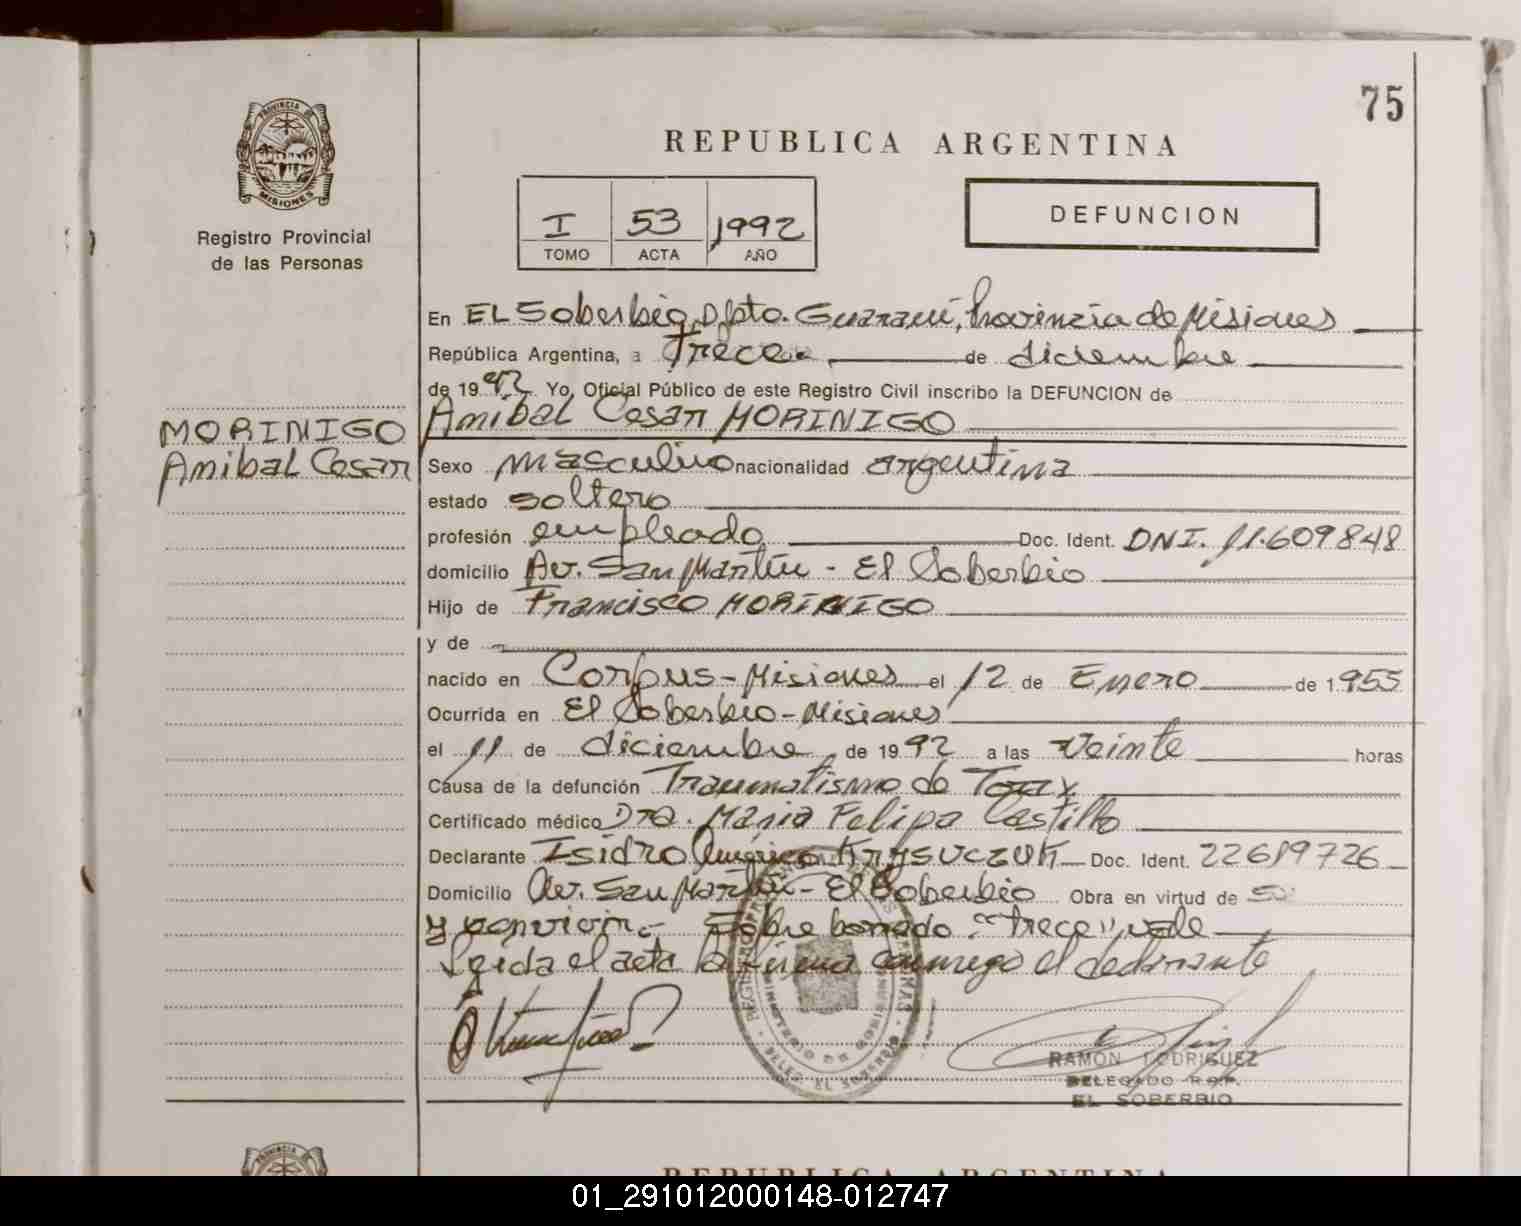 75
PROVINCIA DE
MISIONES
Registro Provincial
de las Personas
REPUBLICA ARGENTINA
I 53 1992
TOMO ACTA AÑO
DEFUNCION
En EL Soberbio, Dpto. Guaraní, Provincia de Misiones
República Argentina, a Trece de diciembre
de 1992 Yo, Oficial Público de este Registro Civil inscribo la DEFUNCION de
MORINIGO
Anibal Cesar
Anibal Cesar MORINIGO
Sexo masculino nacionalidad argentina
estado soltero
profesión empleado Doc. Ident. DNI. 11.609848
domicilio Av. San Martín - El Soberbio
Hijo de Francisco MORINIGO
y de
nacido en Corpus - Misiones el 12 de Enero de 1955
Ocurrida en El Soberbio - Misiones
el 11 de diciembre de 1992 a las Veinte horas
Causa de la defunción Traumatismo de Torax
Certificado médico Dra. Maria Felipa Castillo
Declarante Isidro Américo KRYSUCZUK Doc. Ident. 22619726
Domicilio Av. San Martín - El Soberbio Obra en virtud de
y Sobre borrado: "trece", vale
Leida el acta la firma conmigo el declarante
RAMON RODRIGUEZ
DELEGADO R.P.P.
EL SOBERBIO
PROVINCIA DE
REPUBLICA ARGENTINA
01_291012000148-012747